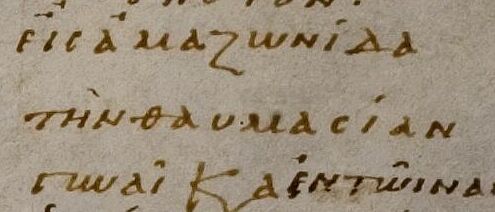 εἰς ἀμαζωνίδα
τὴν θαυμασίαν
γυναῖκα ἐν τῶι να